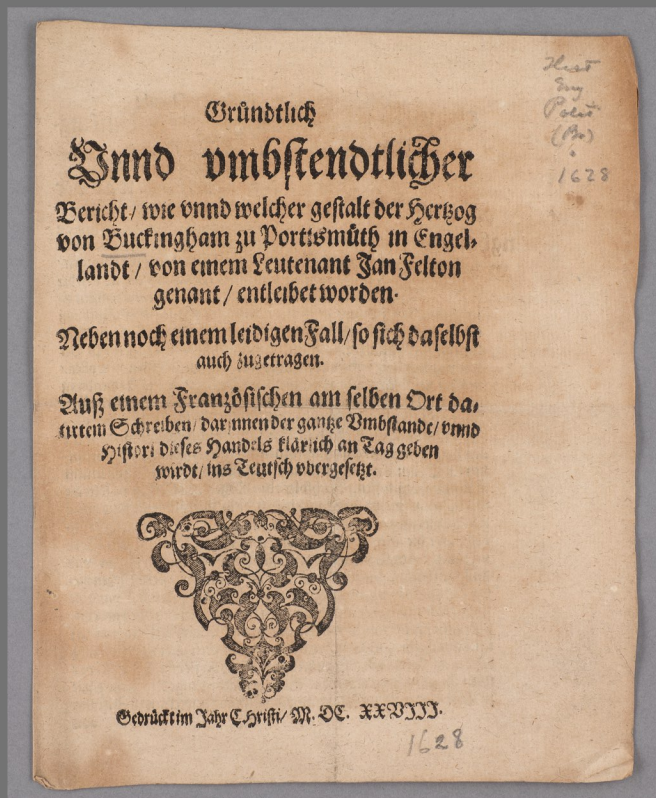 Gründtlich
Vnnd vmbstendtlicher
Bericht/ wie vnnd welcher gestalt der Hertzog
von Buckingham zu Portismüth in Engel-
landt/ von einem Leutenant Jan Felton
genant/ entleibet worden.
Neben noch einem leidigen Fall/ so sich daselbst
auch zugetragen.
Auß einem Französischen am selben Ort da-
tirtem Schreiben/ darinnen der gantze Vmbstande/ vnnd
Histori dieses Handels klärlich an Tag geben
wirdt/ ins Teutsch vbergesetzt.
Gedrückt im Jahr CHristi/ M. DC. XXVIII.
1628
Hist
Eng
(Br)
1628